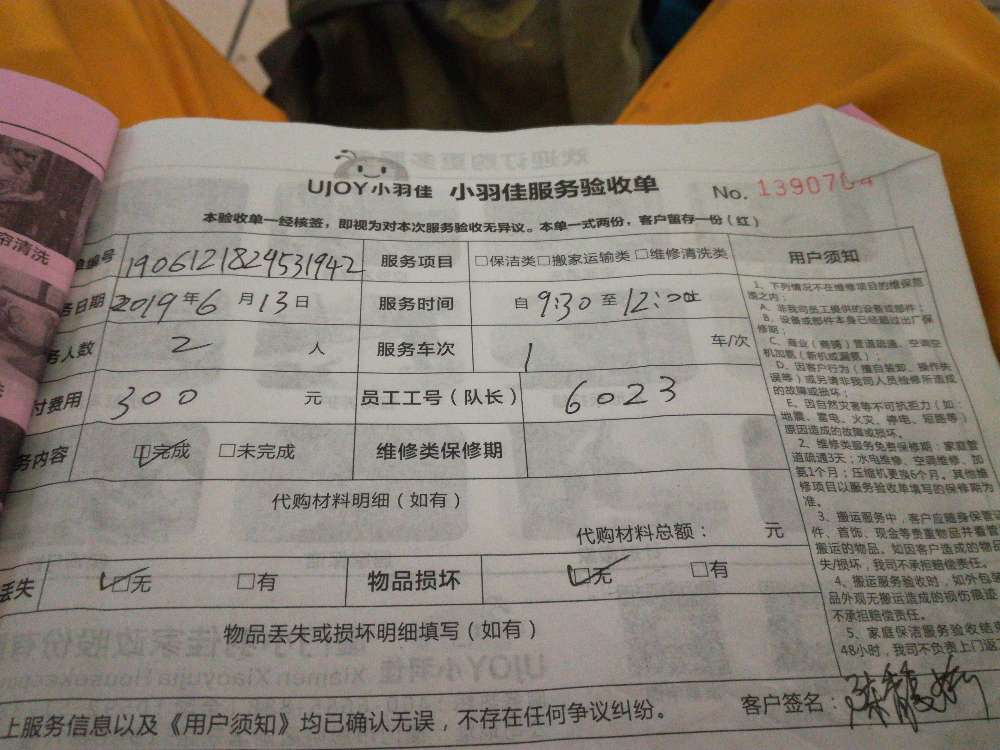 UJOY小羽佳 小羽佳服务验收单 No. 1390704
本验收单一经核签，即视为对本次服务验收无异议。本单一式两份，客户留存一份（红）
编号 1906121829531942 服务项目 □保洁类□搬家运输类 □维修清洗类 用户须知
务日期 2019年6月13日 服务时间 自9:30至12:00止
务人数 2 人 服务车次 1 车/次
付费用 300 元 员工工号（队长） 6023
务内容 □完成 □未完成 维修类保修期
代购材料明细（如有）
代购材料总额： 元
丢失 □无 □有 物品损坏 □无 □有
物品丢失或损坏明细填写（如有）
上服务信息以及《用户须知》均已确认无误，不存在任何争议纠纷。 客户签名：
1、下列情况不在维修项目的维保范
围之内：
A、非我司员工提供的设备或部件；
B、设备或部件本身已经超过出厂保
修期；
C、商业（商铺）管道疏通、空调空
机加氨（新机或漏氨）；
D、因客户行为（擅自装卸、操作失
误等）或另请非我司人员检修所造成
的故障或损坏；
E、因自然灾害等不可抗拒力（如：
地震、雷电、火灾、停电、短路等）
原因造成的故障或损坏。
2、维修类服务免费保修期：家庭管
道疏通3天；水电维修、空调维修、加
氨1个月；压缩机更换6个月。其他维
修项目以服务验收单填写的保修期为
准。
3、搬运服务中，客户应随身保管证
件、首饰、现金等贵重物品并看管
搬运的物品。如因客户造成的物品
失/损坏，我司不承担赔偿责任。
4、搬运服务验收时，如外包等
品外观无搬运造成的损伤痕迹
不承担赔偿责任。
5、家庭保洁服务验收结束
48小时，我司不负责上门返
帘清洗